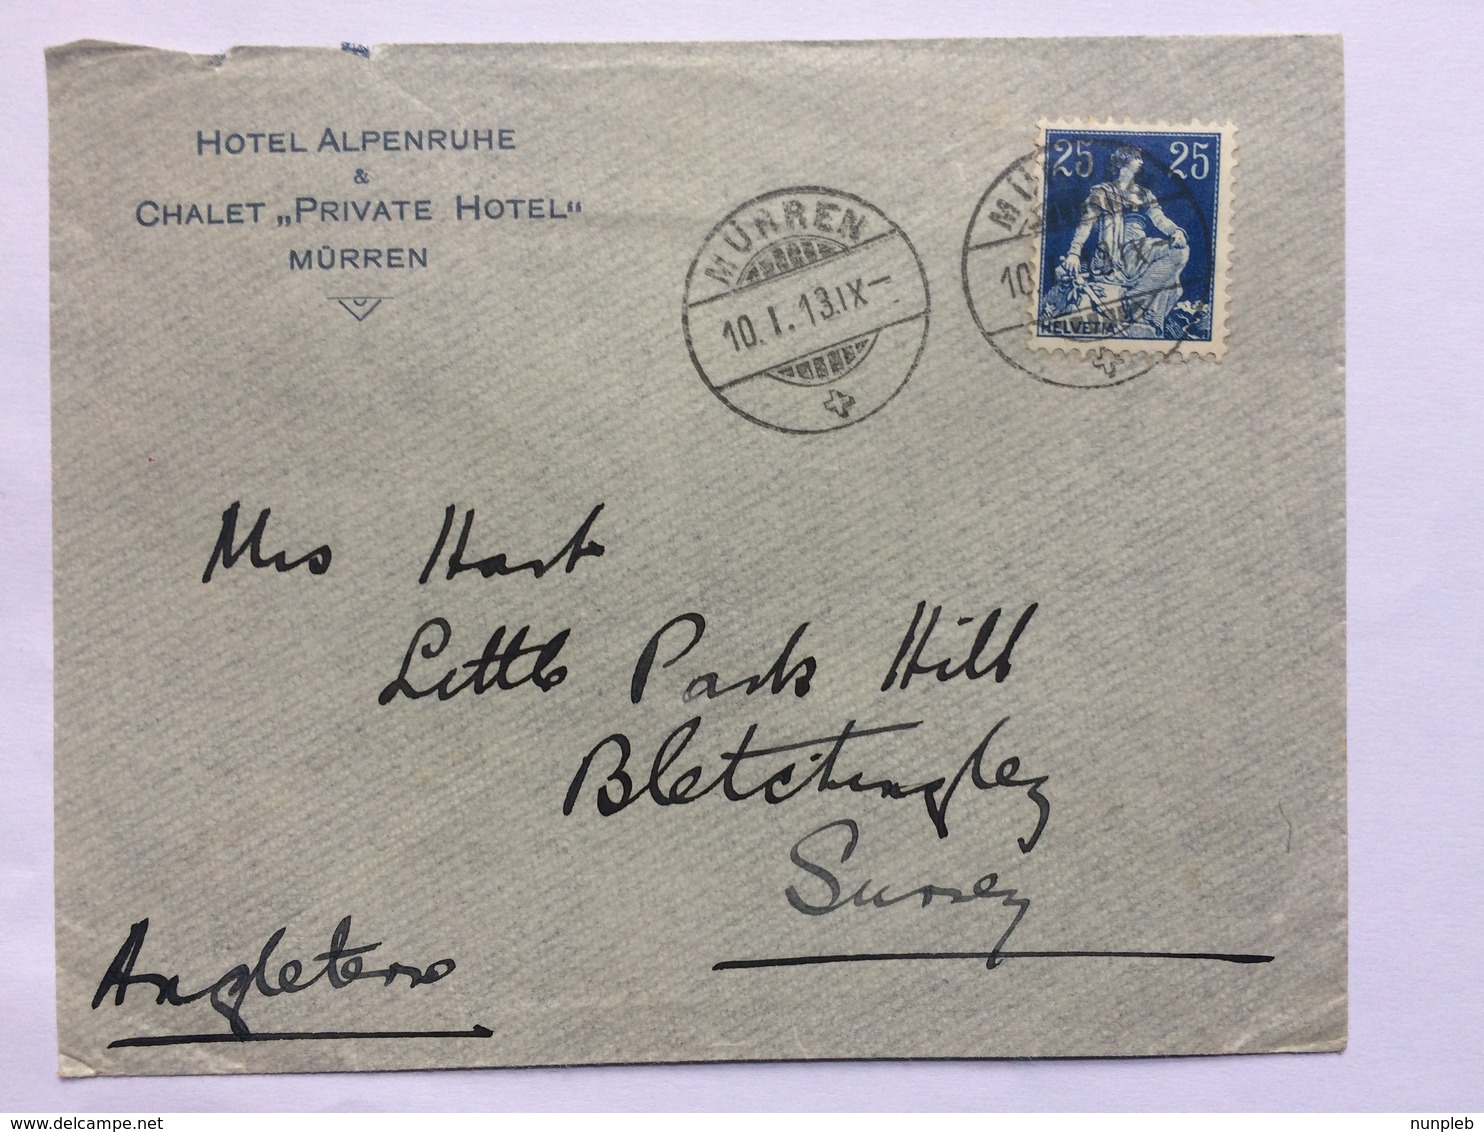 HOTEL ALPENRUHE
&
CHALET „PRIVATE HOTEL“
MÜRREN
MÜRREN
10.I.13.IX—
25 25
HELVETIA
Mrs Hart
Little Park Hill
Bletchingley
Surrey
Angleterre
delcampe.net
nunpleb